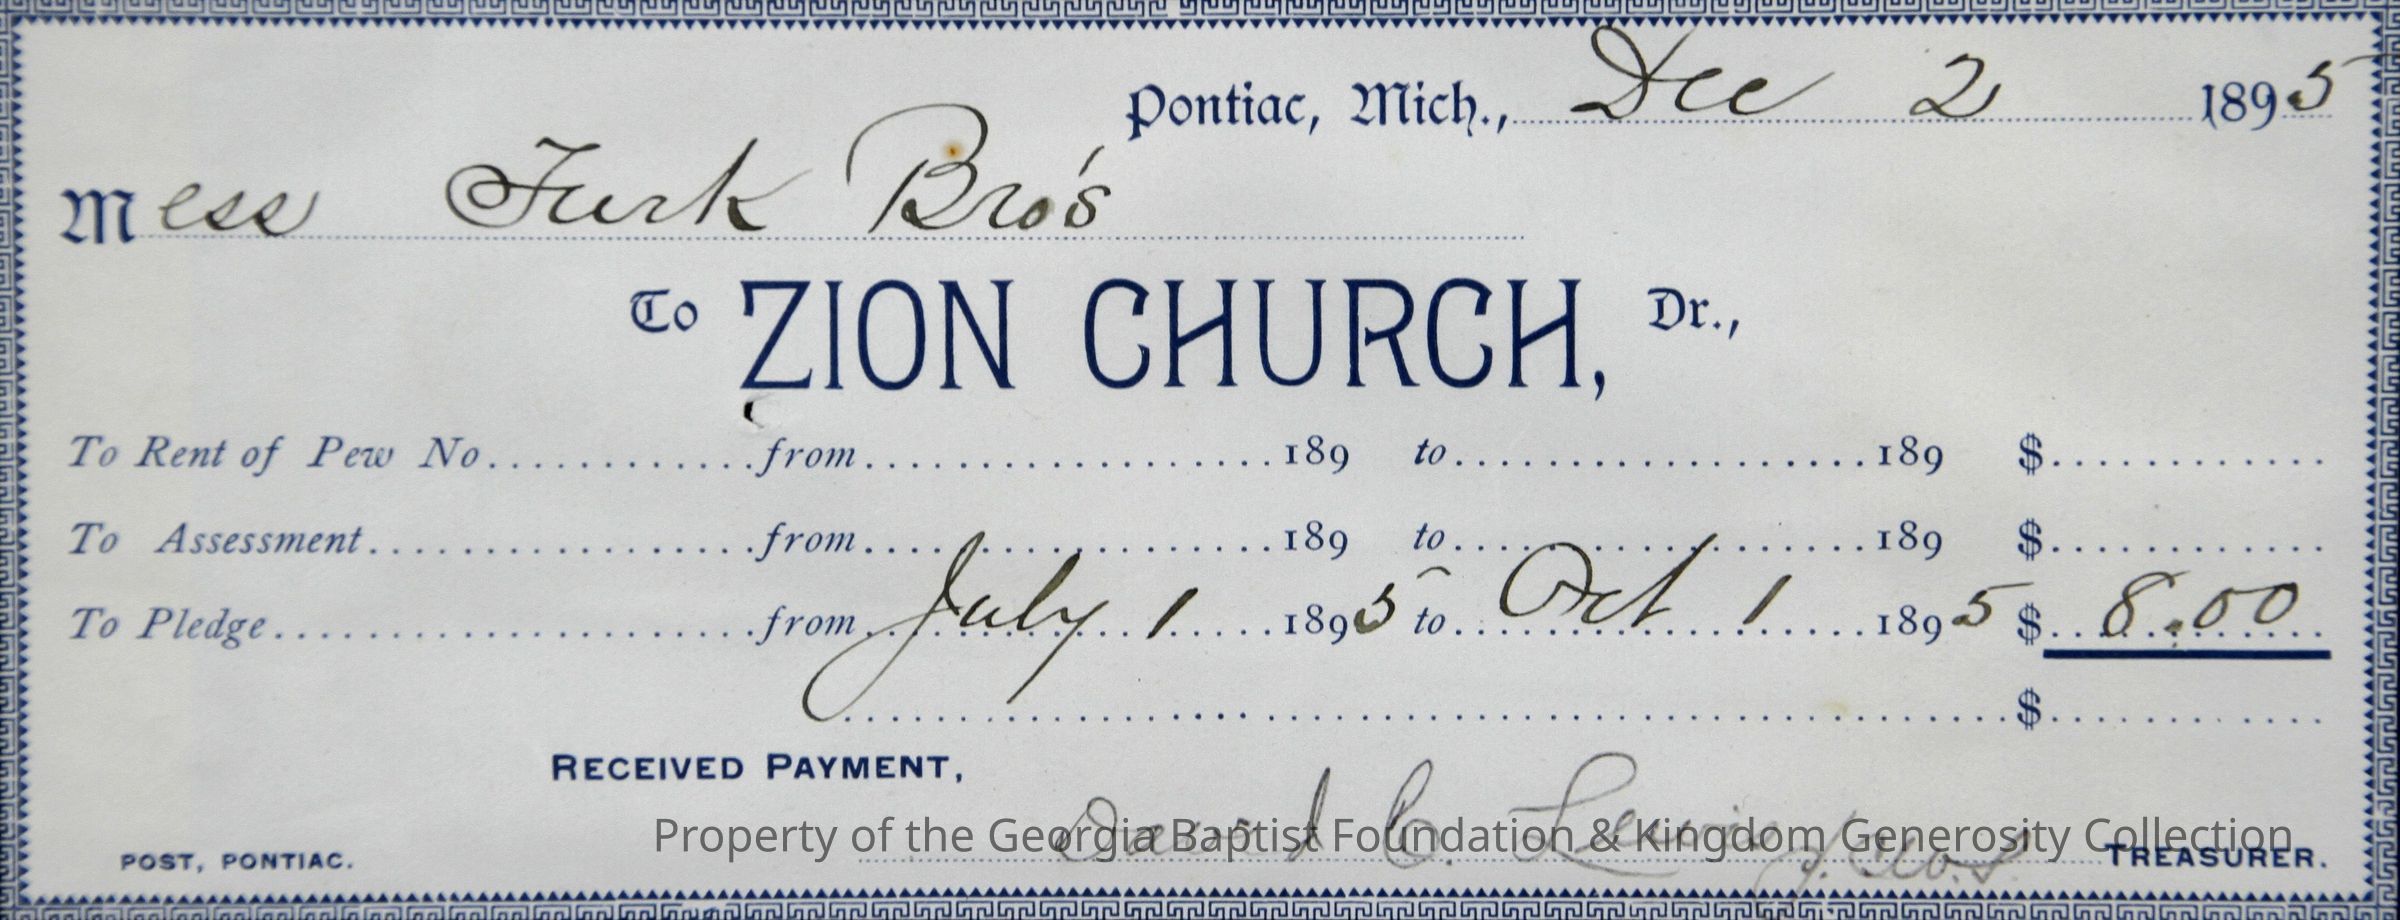 Pontiac, Mich., Dec 2 1895
Mess Turk Bro's
To ZION CHURCH, Dr.,
To Rent of Pew No. from 189 to 189 $
To Assessment from 189 to 189 $
To Pledge from July 1 1895 to Oct 1 1895 $ 8.00
$
RECEIVED PAYMENT,
David C. Lewis
Property of the Georgia Baptist Foundation & Kingdom Generosity Collection
POST, PONTIAC. TREASURER.